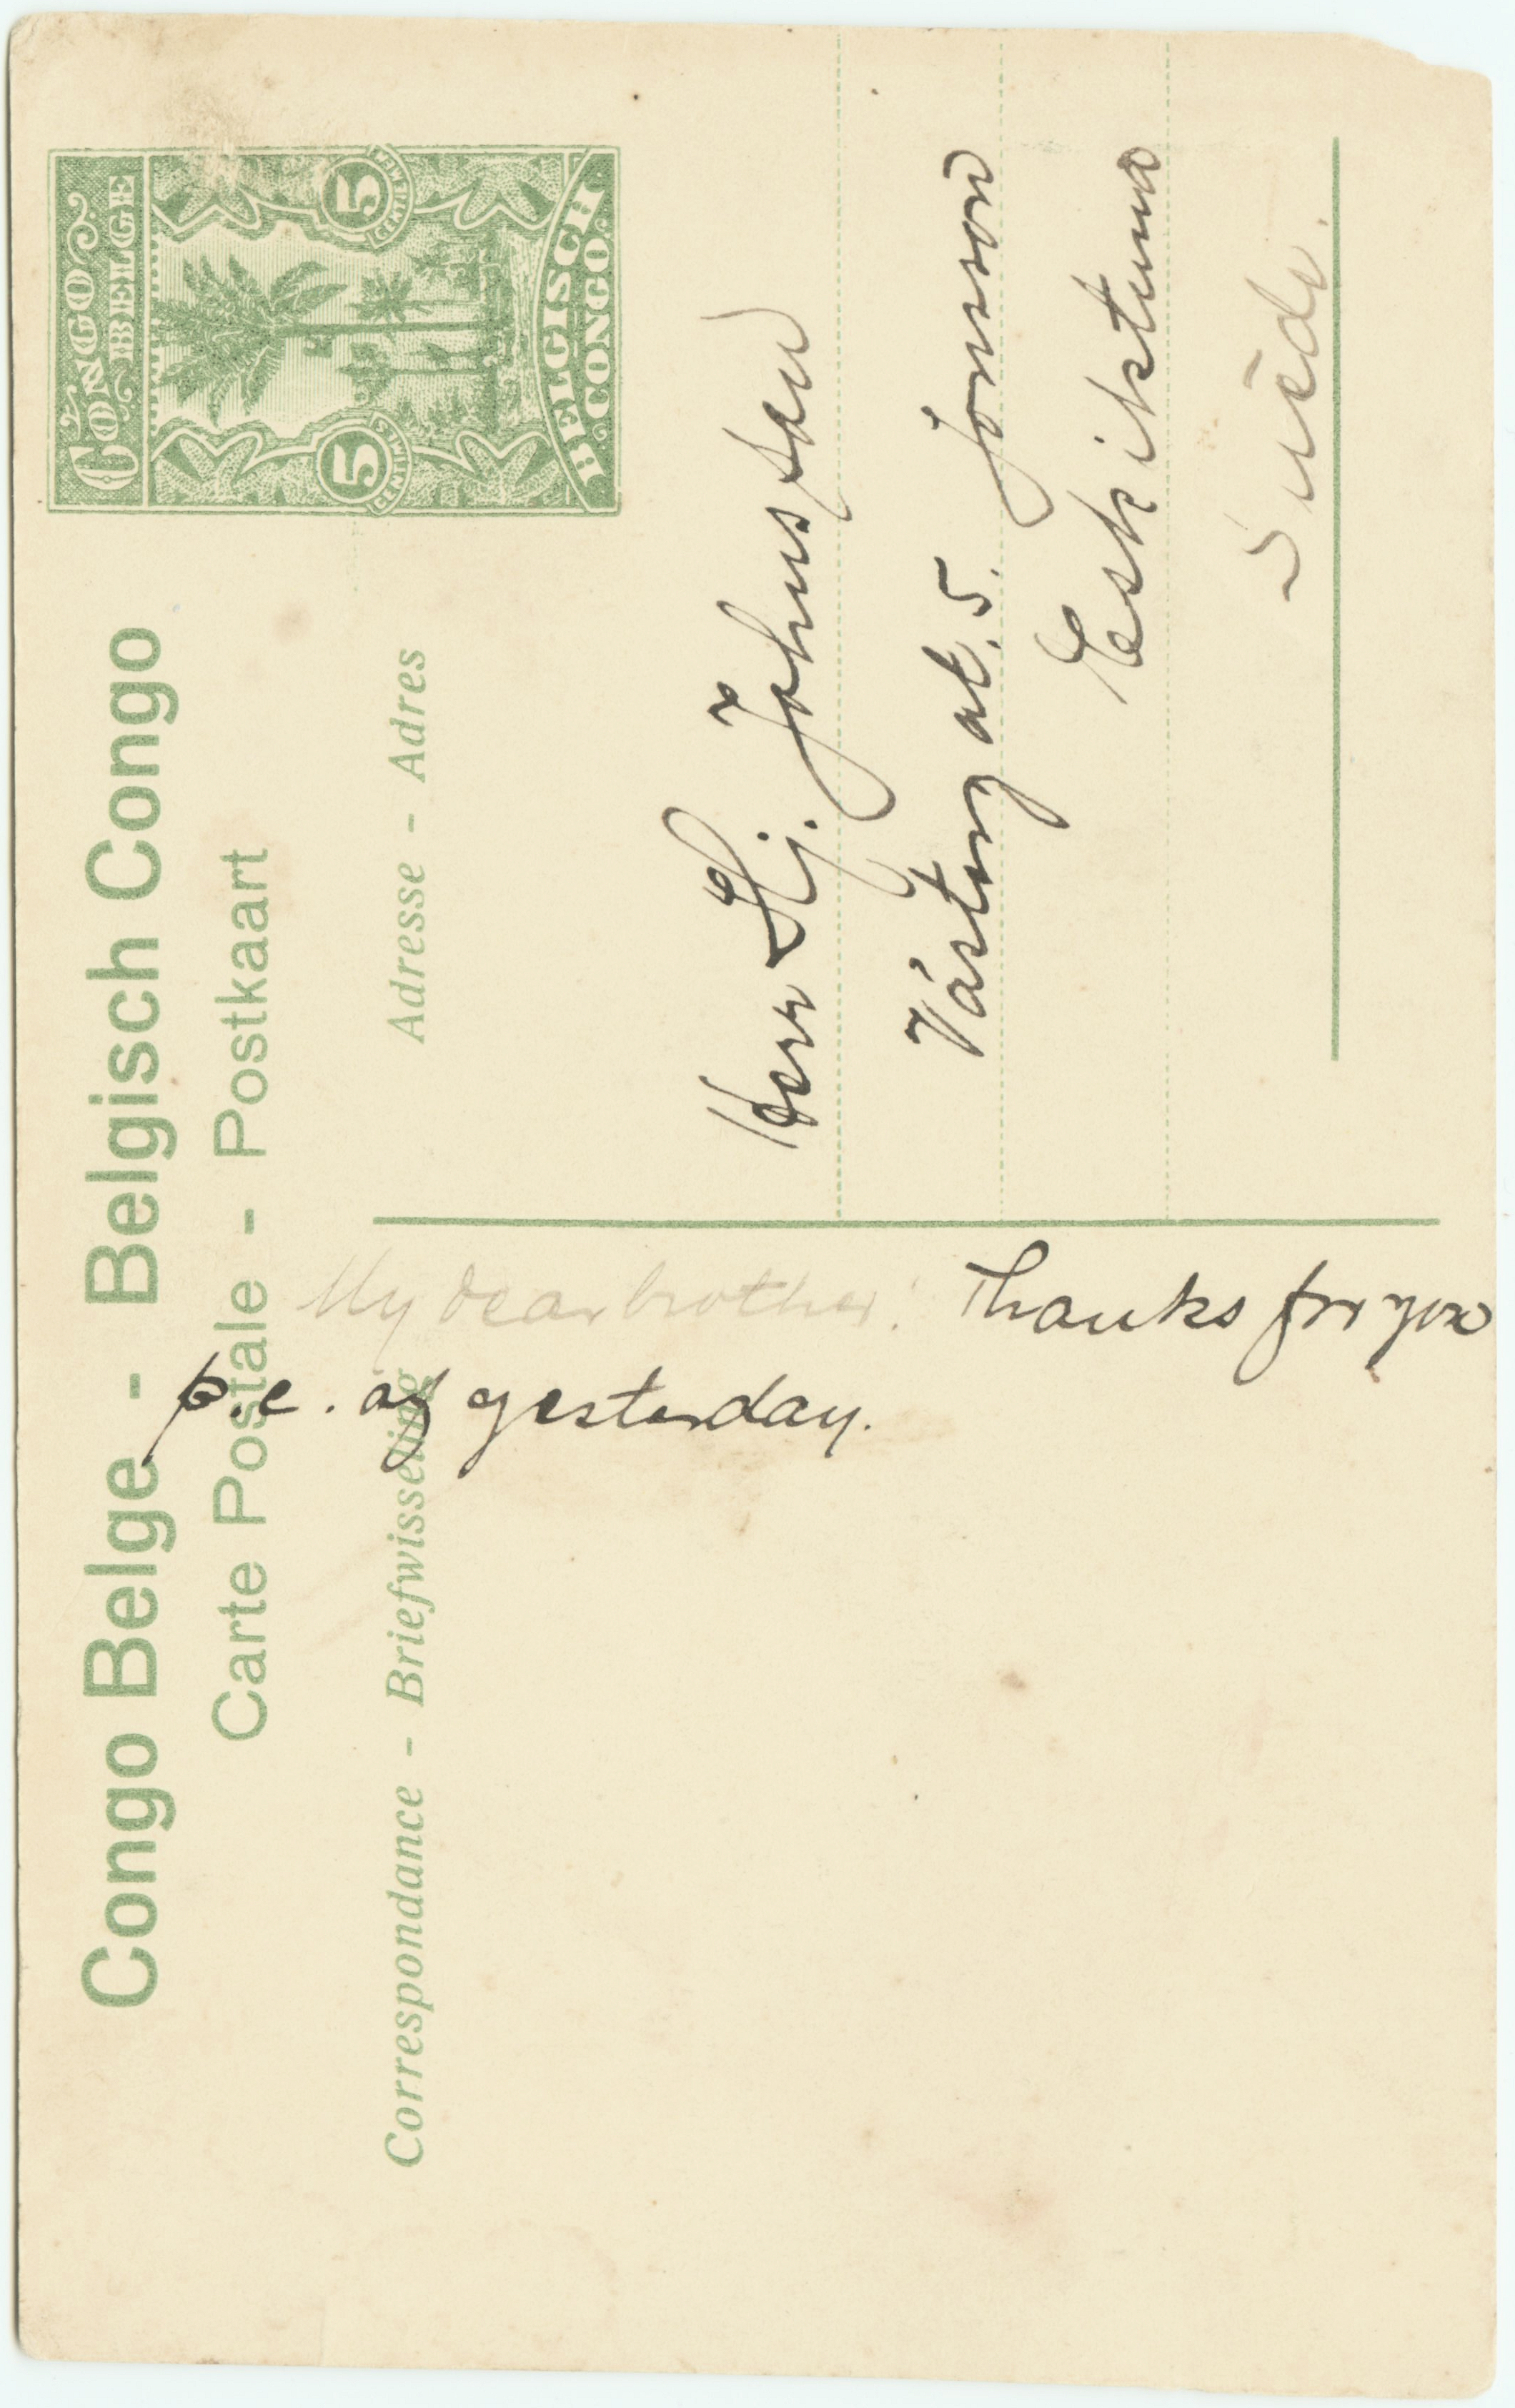 Congo Belge - Belgisch Congo
Carte Postale - Postkaart
CONGO BELGE
5 CENTIMES
5 CENTIMEN
BELGISCH CONGO
Correspondance - Briefwisseling
Adresse - Adres
Herr Hj. Johnsson
Västergat. 5.
Eskilstuna
Suède.
My dear brother! Thanks for your
p.c. of yesterday.